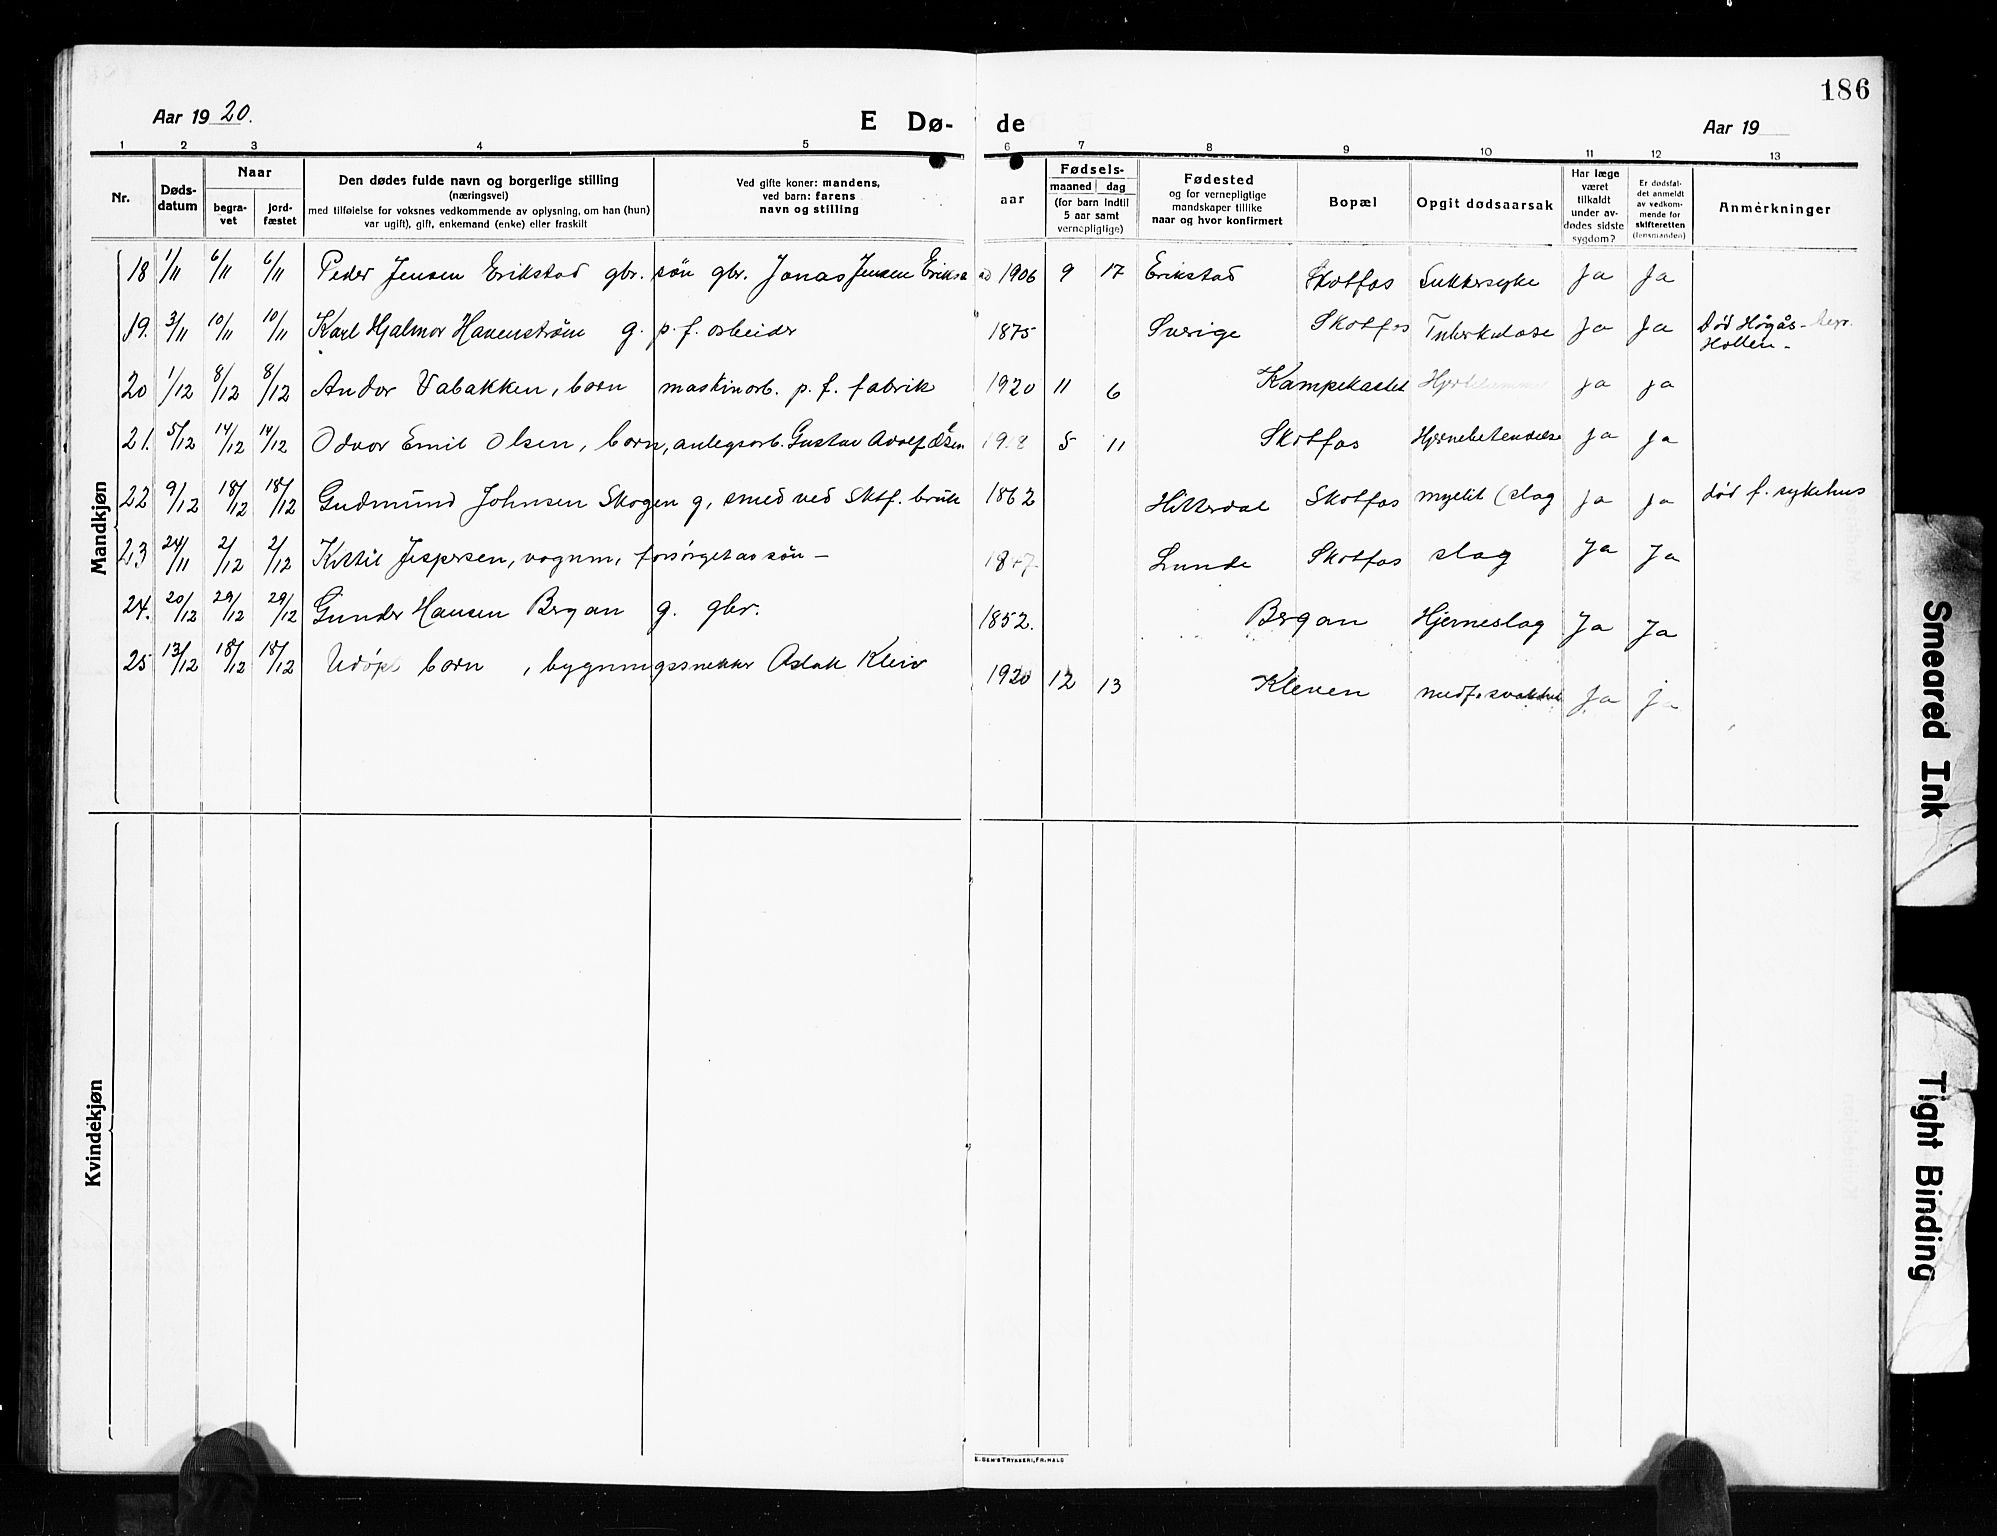 186
Aar 1920.
E Dø- de
Aar 19
1 2 3 4 5 6 7 8 9 10 11 12 13
Nr.
Døds-
datum
Naar
begra-
vet
jord-
fæstet
Den dødes fulde navn og borgerlige stilling
(næringsvei)
med tilføielse for voksnes vedkommende av oplysning, om han (hun)
var ugift), gift, enkemand (enke) eller fraskilt
Ved gifte koner: mandens,
ved barn: farens
navn og stilling
aar
Fødsels-
maaned dag
(for barn indtil
5 aar samt
vernepligtige)
Fødested
og for vernepligtige
mandskaper tillike
naar og hvor konfirmert
Bopæl
Opgit dødsaarsak
Har læge
været
tilkaldt
under av-
dødes sidste
sygdom?
Er dødsfal-
det anmeldt
av vedkom-
mende for
skifteretten
(lensmanden)
Anmerkninger
Mandkjøn
18 1/11 6/11 6/11 Peder Jensen Erikstad gbr. søn gbr. Jonas Jensen Erikstad 1906 9 17 Erikstad Skotfos Sukkersyke Ja Ja
19. 3/11 10/11 10/11 Karl Hjalmar Havenstrøm g. p. f. arbeider 1875 Sverige Skotfos Tuberkulose Ja Ja Død Høgås-
Hollen-
20 1/12 8/12 8/12 Andor Vabakken, barn maskinarb. p. f. fabrik 1920 11 6 Kampekastet Ja Ja
21. 5/12 14/12 14/12 Odvar Emil Olsen, barn, anlegsarb. Gustav Adolf Olsen 1918 5 11 Skotfos Hjernebetendelse Ja Ja
22 9/12 18/12 18/12 Gudmund Johnsen Skogen g, smed ved Sktf. bruk 1862 Hitterdal Skotfos myelit (slag Ja Ja død f. sykehus
23 24/11 2/12 2/12 Kittil Jespersen, vognm, forsørget av søn - 1847 Lunde Skotfos slag Ja Ja
24. 20/12 29/12 29/12 Gunder Hansen Bergan g. gbr. 1852. Bergan Hjerneslag Ja Ja
25 13/12 18/12 18/12 Udøpt barn, bygningssnekker Aslak Kleiv 1920 12 13 Kleven medf. svakhet Ja ja
Kvindekjøn
E. SEM'S TRYKKERI, FR.HALD
Smeared Ink
Tight Binding